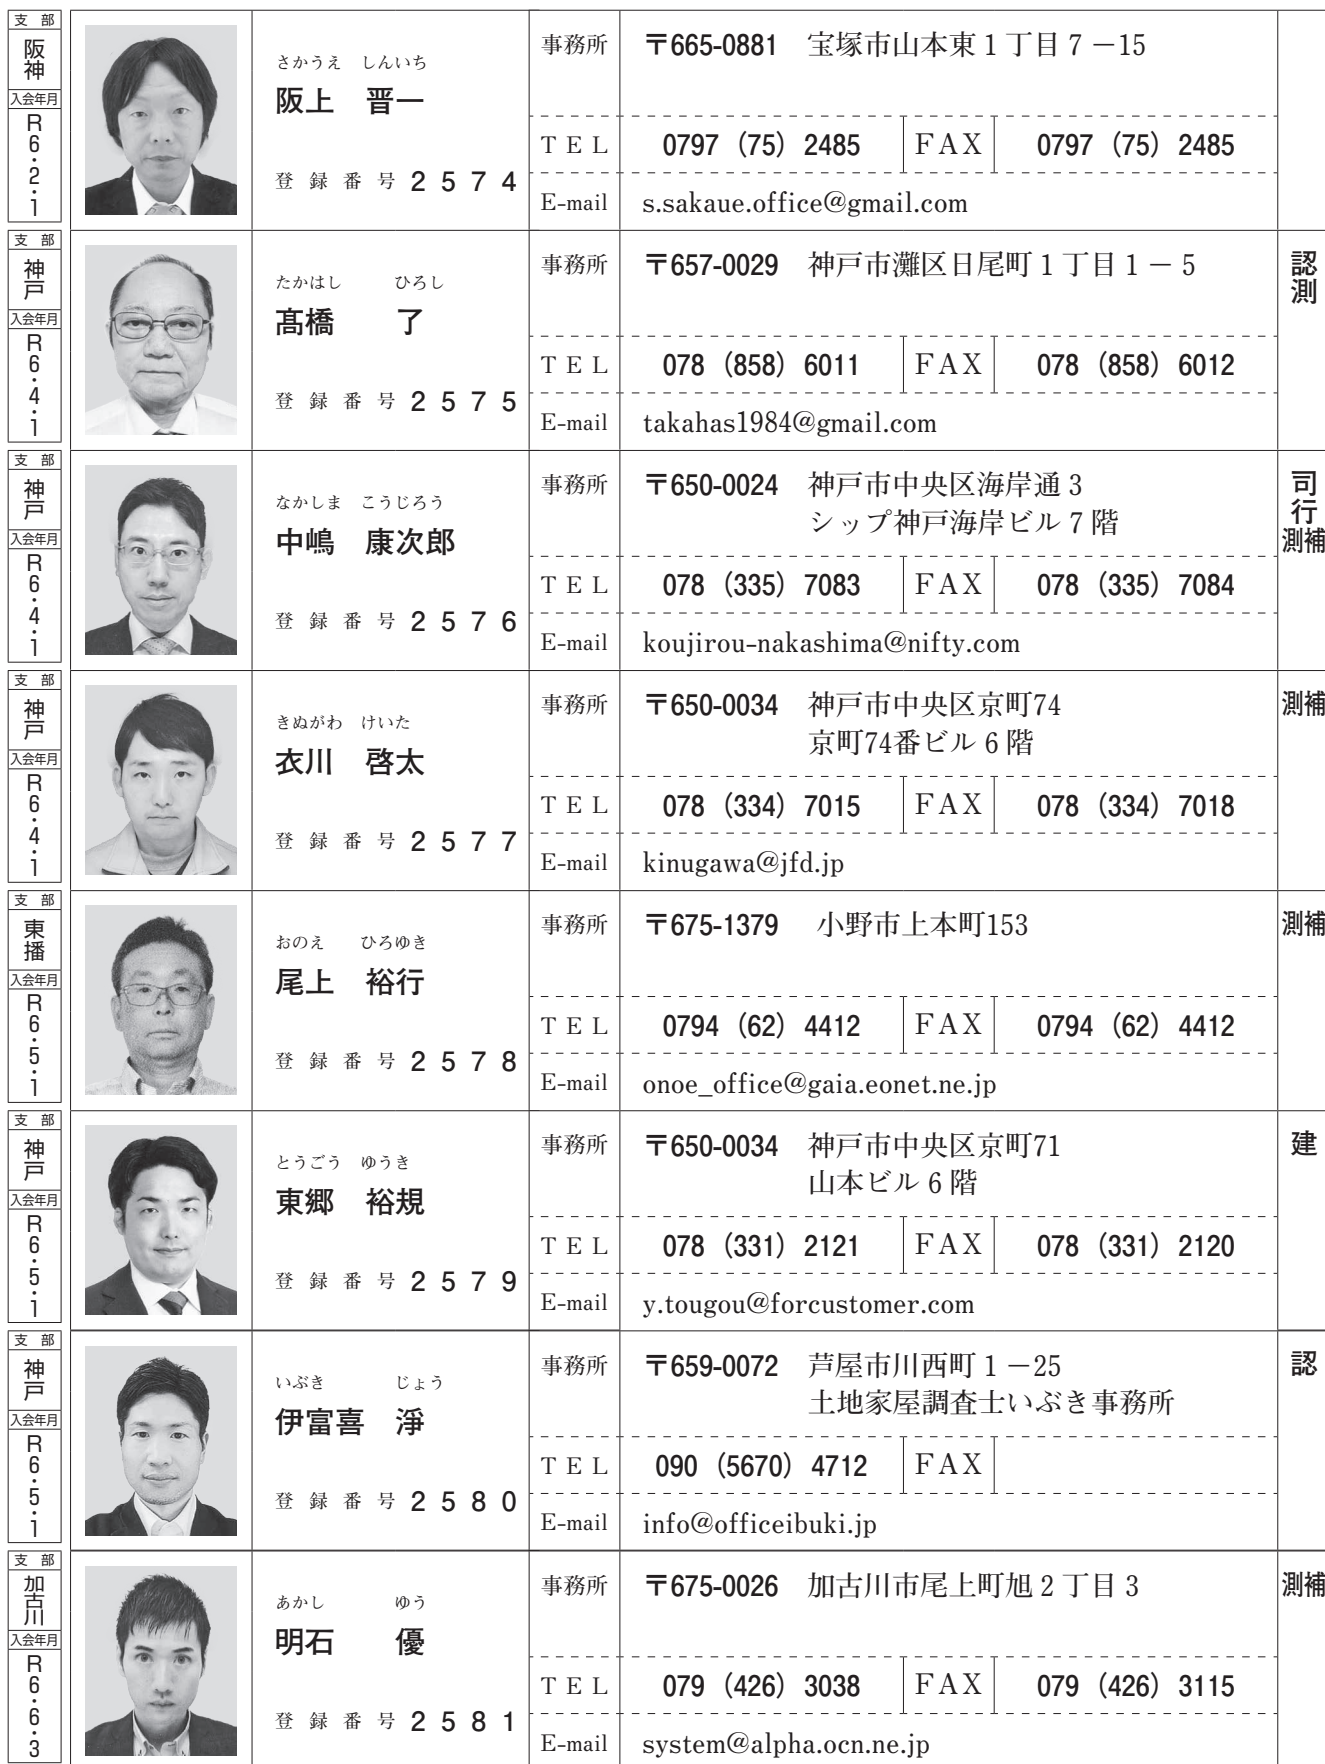 支部
阪神
入会年月
R6・2・1
さかうえ しんいち
阪上 晋一
登録番号 2574
事務所 〒665-0881 宝塚市山本東1丁目7-15
TEL 0797(75)2485 FAX 0797(75)2485
E-mail s.sakaue.office@gmail.com
支部
神戸
入会年月
R6・4・1
たかはし ひろし
髙橋 了
登録番号 2575
事務所 〒657-0029 神戸市灘区日尾町1丁目1-5
TEL 078(858)6011 FAX 078(858)6012
E-mail takahas1984@gmail.com
認測
支部
神戸
入会年月
R6・4・1
なかしま こうじろう
中嶋 康次郎
登録番号 2576
事務所 〒650-0024 神戸市中央区海岸通3
シップ神戸海岸ビル7階
TEL 078(335)7083 FAX 078(335)7084
E-mail koujirou-nakashima@nifty.com
司行
測補
支部
神戸
入会年月
R6・4・1
きぬがわ けいた
衣川 啓太
登録番号 2577
事務所 〒650-0034 神戸市中央区京町74
京町74番ビル6階
TEL 078(334)7015 FAX 078(334)7018
E-mail kinugawa@jfd.jp
測補
支部
東播
入会年月
R6・5・1
おのえ ひろゆき
尾上 裕行
登録番号 2578
事務所 〒675-1379 小野市上本町153
TEL 0794(62)4412 FAX 0794(62)4412
E-mail onoe_office@gaia.eonet.ne.jp
測補
支部
神戸
入会年月
R6・5・1
とうごう ゆうき
東郷 裕規
登録番号 2579
事務所 〒650-0034 神戸市中央区京町71
山本ビル6階
TEL 078(331)2121 FAX 078(331)2120
E-mail y.tougou@forcustomer.com
建
支部
神戸
入会年月
R6・5・1
いぶき じょう
伊富喜 淨
登録番号 2580
事務所 〒659-0072 芦屋市川西町1-25
土地家屋調査士いぶき事務所
TEL 090(5670)4712 FAX
E-mail info@officeibuki.jp
認
支部
加古川
入会年月
R6・6・3
あかし ゆう
明石 優
登録番号 2581
事務所 〒675-0026 加古川市尾上町旭2丁目3
TEL 079(426)3038 FAX 079(426)3115
E-mail system@alpha.ocn.ne.jp
測補